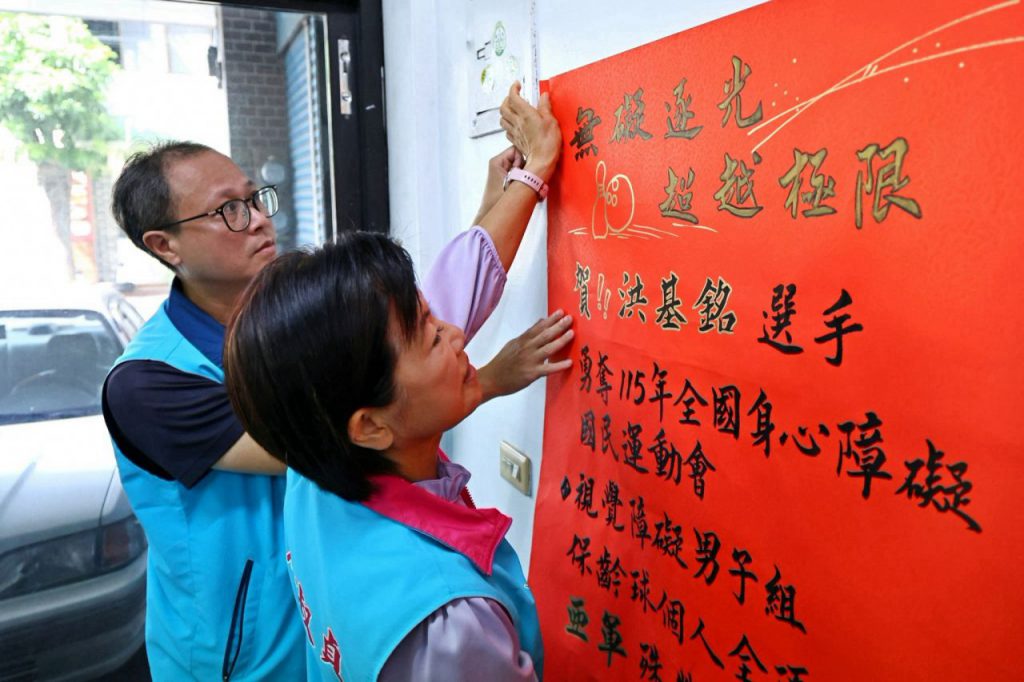 無礙逐光
超越極限
賀!!洪基銘選手
勇奪115年全國身心障礙
國民運動會
◆視覺障礙男子組
保齡球個人全項
亞軍殊
貞